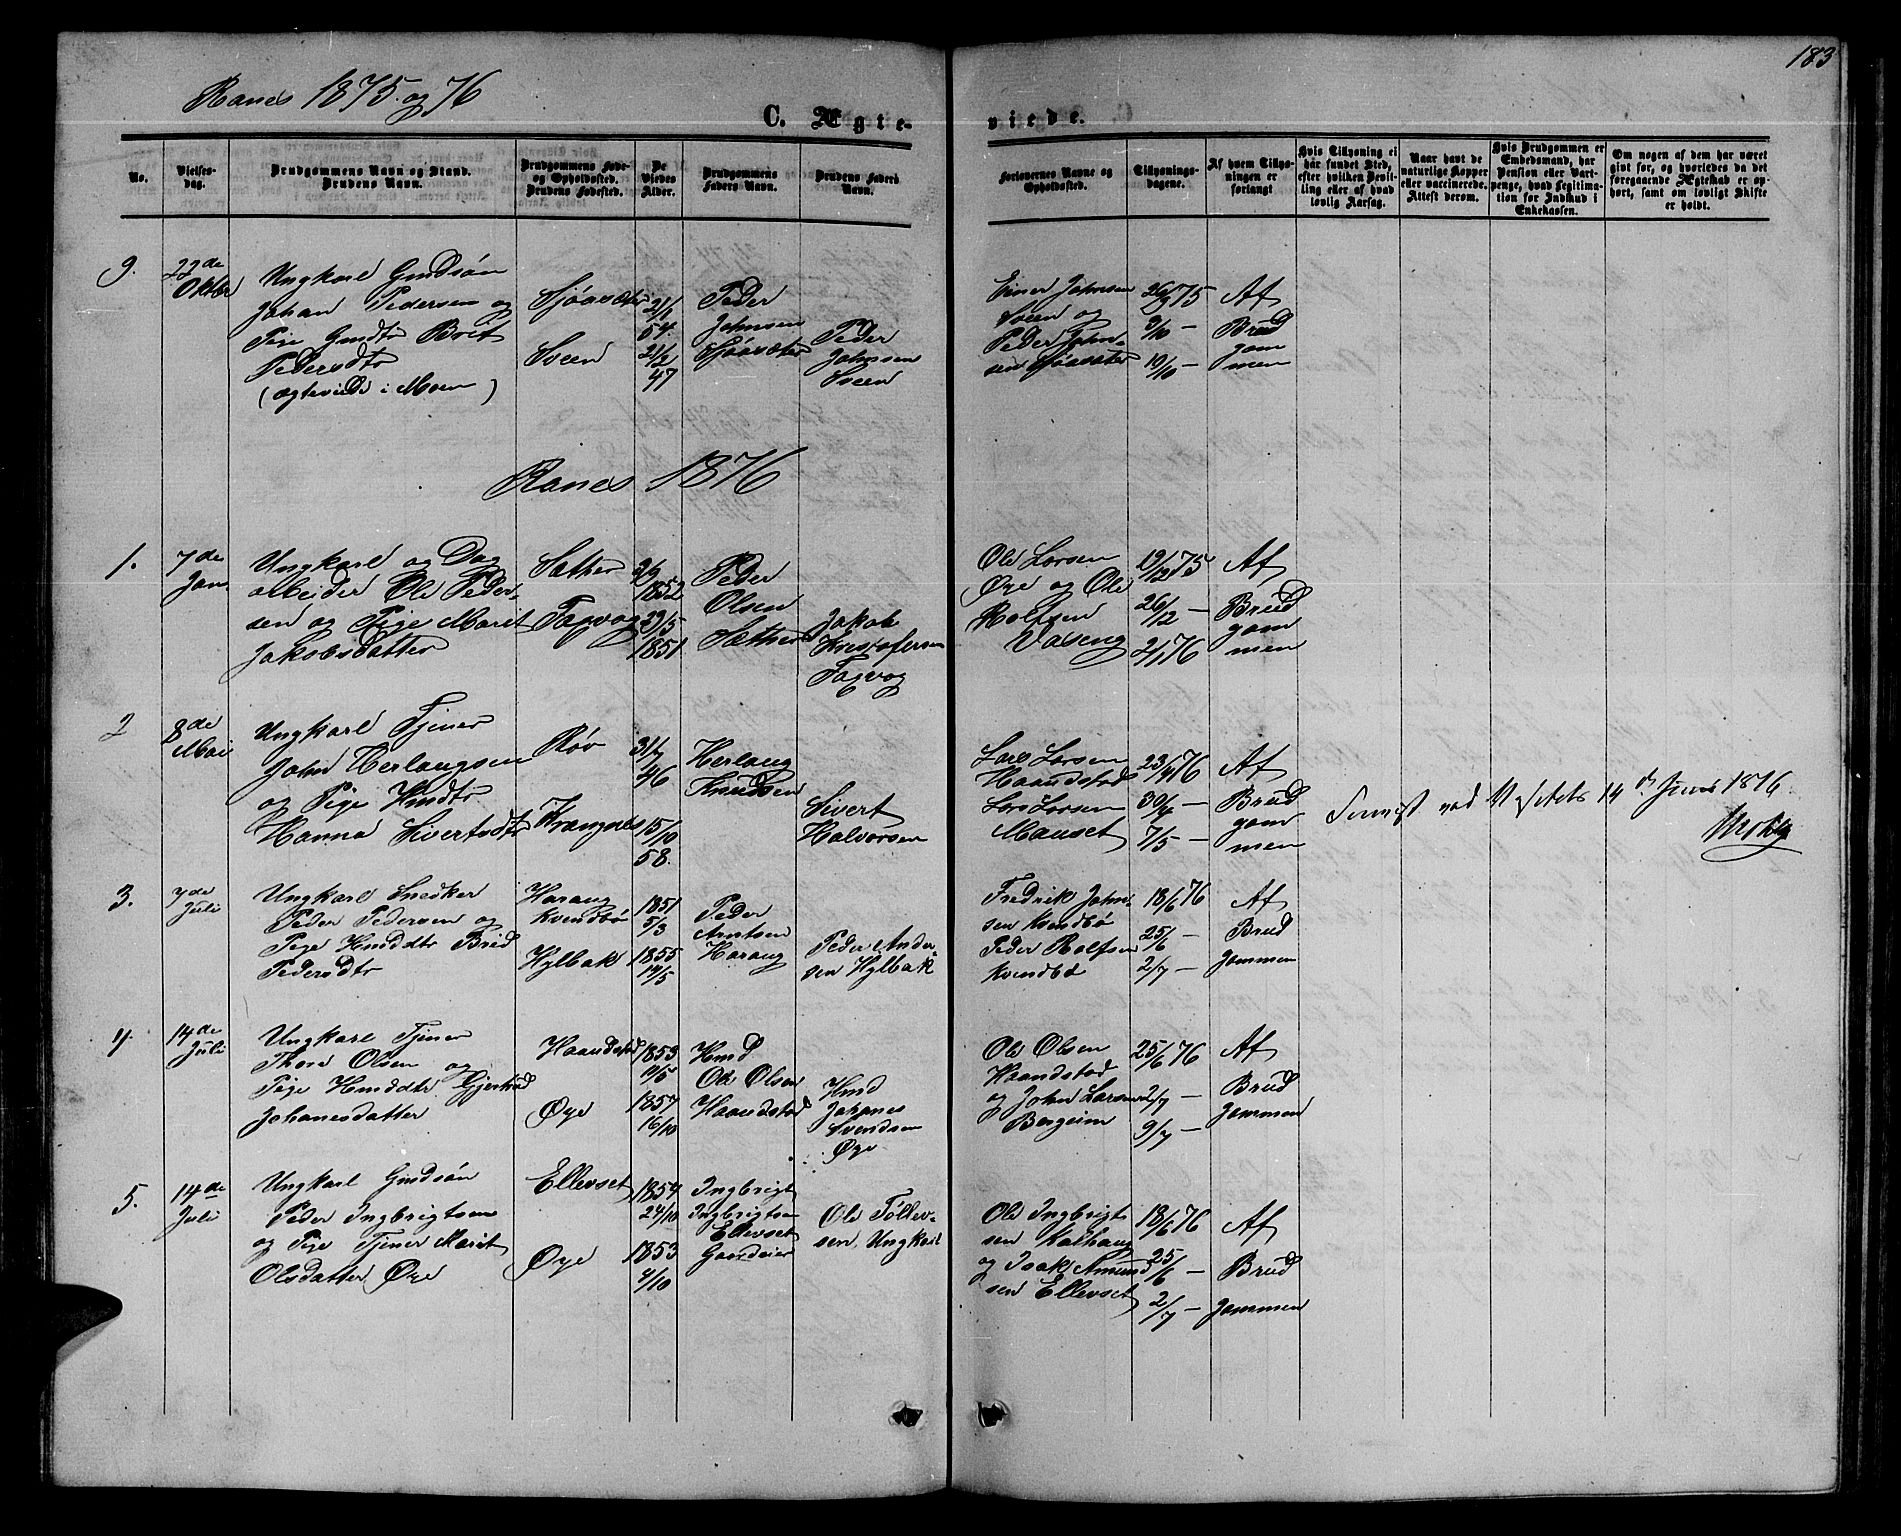 183
Ranes 1875 og 76
C. Ægte-
viede.
No.
Vielses-
dag.
Brudgommens Navn og Stand.
Brudens Navn.
Brudgommens Føde-
og Opholdssted.
Brudens Fødested.
De
Viedes
Alder.
Brudgommens
Faders Navn.
Brudens Faders
Navn.
Forlovernes Navne og
Opholdssted.
Tillysnings-
dagene.
Af hvem Tillys-
ningen er
forlangt
Hvis Tillysning ei
har fundet Sted,
efter hvilken Bevil-
ling eller af hvad
lovlig Aarsag.
Naar havt de
naturlige Kopper
eller vaccinerede.
Attest derom.
Hvis Brudgommen er
Embedsmand, har
Pension eller Vart-
penge, hvad Legitima-
tion for Indskud i
Enkekassen.
Om nogen af dem har været
givt før, og hvorledes da det
foregaaende Ægteskab er op-
hørt, samt om lovligt Skifte
er holdt.
9.
22de
Oktbr
Ungkarl Gmdsøn
Johan Pedersen og
Pige Gmdtr Brit
Pedersdtr
(ægteviede i Moen)
Sjøasæter
Sveen
21/1
54.
21/2
47
Peder
Johnsen
Sjøasæter
Peder
Johnsen
Sveen
Einer Johnsen
Sveen og
Peder John-
sen Sjøasæter
26/9 75
3/10 —
10/10 —
Af
Brud
gom
men
Ranes 1876
1.
7de
Jan.
Ungkarl og Dag
arbeider Ole Peder-
sen og Pige Marit
Jakobsdatter
Sæther
Fagvog
2/9
1852
29/5
1851
Peder
Olsen
Sæther
Jakob
Kristofersen
Fagvog
Ole Larsen
Øye og Ole
Rolfsen
Vaseng
19/12 75
26/12 —
2/1 76
Af
Brud
gom
men
2
8de
Mai
Ungkarl Tjener
John Herlaugsen
og Pige Hmdtr
Hanna Sivertsdtr
Røv
Krangnes
31/7
46
15/10
58.
Herlaug
Knudsen
Sivert
Halvorsen
Lars Larsen
Haandstad
Lars Larsen
Mauset
23/4 76
30/4 —
7/5 —
Af
Brud
gom
men
14de Juni 1876
3.
7de
Juli
Ungkarl Snedker
Peder Pedersen og
Pige Hmddtr Brid
Pedersdtr
Harang
Kvendbø
Hylbak
1851
5/3
1855
19/5
Peder
Arntsen
Harang
Peder Ander
sen Hylbak
Fredrik John-
sen Kvendbø
Peder Rolfsen
Kvendbø
18/6 76
25/6 —
2/7 —
Af
Brud
gommen
4.
14de
Juli
Ungkarl Tjener
Thore Olsen og
Pige Hmddtr Gjertrud
Johanesdatter
Haandstad
Øye
1853
19/5
1857
16/10
Hmd
Ole Olsen
Haandstad
Hmd
Johanes
Svendsen
Øye
Ole Olsen
Haandstad
og John Larsen
Bergeim
25/6 76
2/7 —
9/7 —
Af
Brud
gommen
5.
14de
Juli
Ungkarl Gmdsøn
Peder Ingbrigtsen
og Pige Tjener Marit
Olsdatter Øye
Ellevset
Øye
1854
24/10
1853
4/10
Ingbrigt
Ingbrigtsen
Ellevset
Gaardeier
Ole Tøllev-
sen, Ungkarl
Ole Ingbrigt
sen Kalhaug
og Isak Amund
sen Ellevset
18/6 76
25/6 —
2/7 —
Af
Brud
gommen